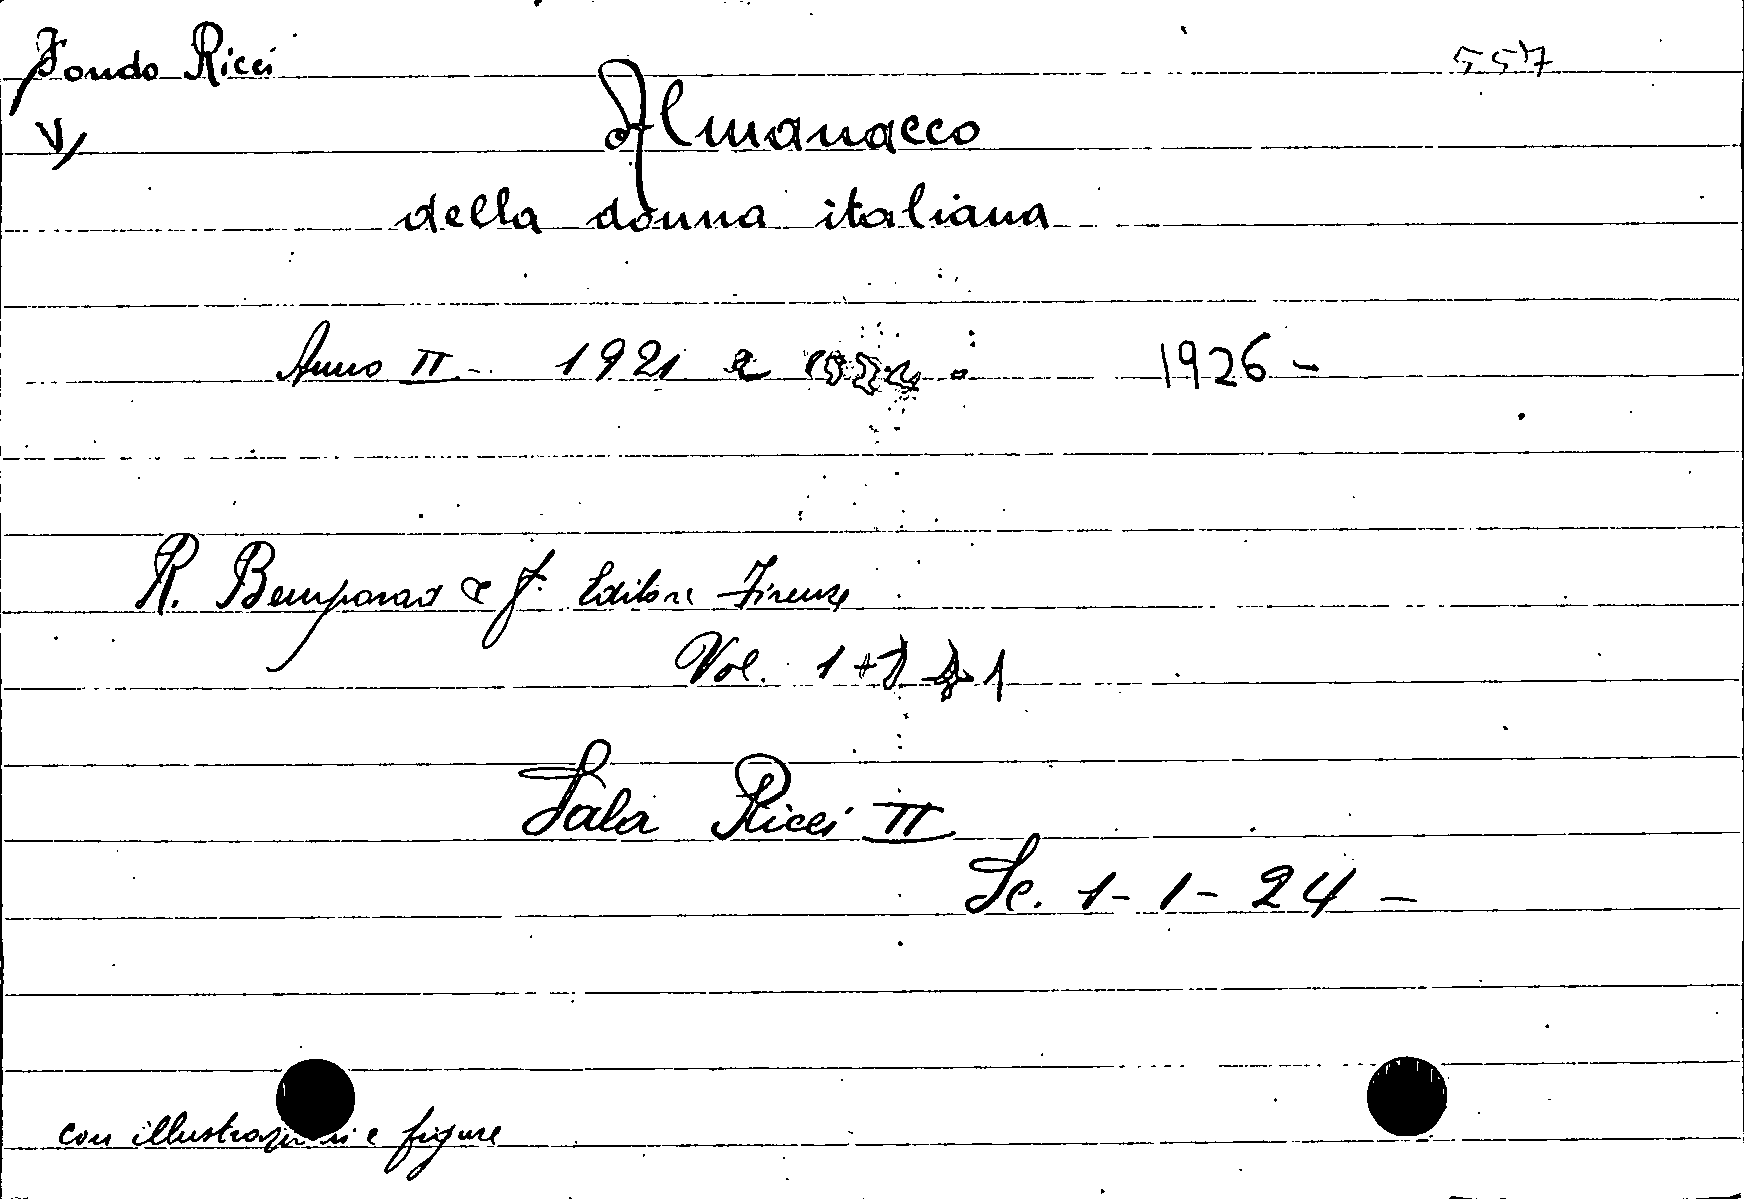 Fondo Ricci 557
V/
Almanacco
della donna italiana
Anno II - 1921 e 1926 -
R. Bemporad & f. Editori Firenze
Vol. 1 + 1
Sala Ricci II
Sc. 1 - 1 - 24 -
con illustrazioni e figure